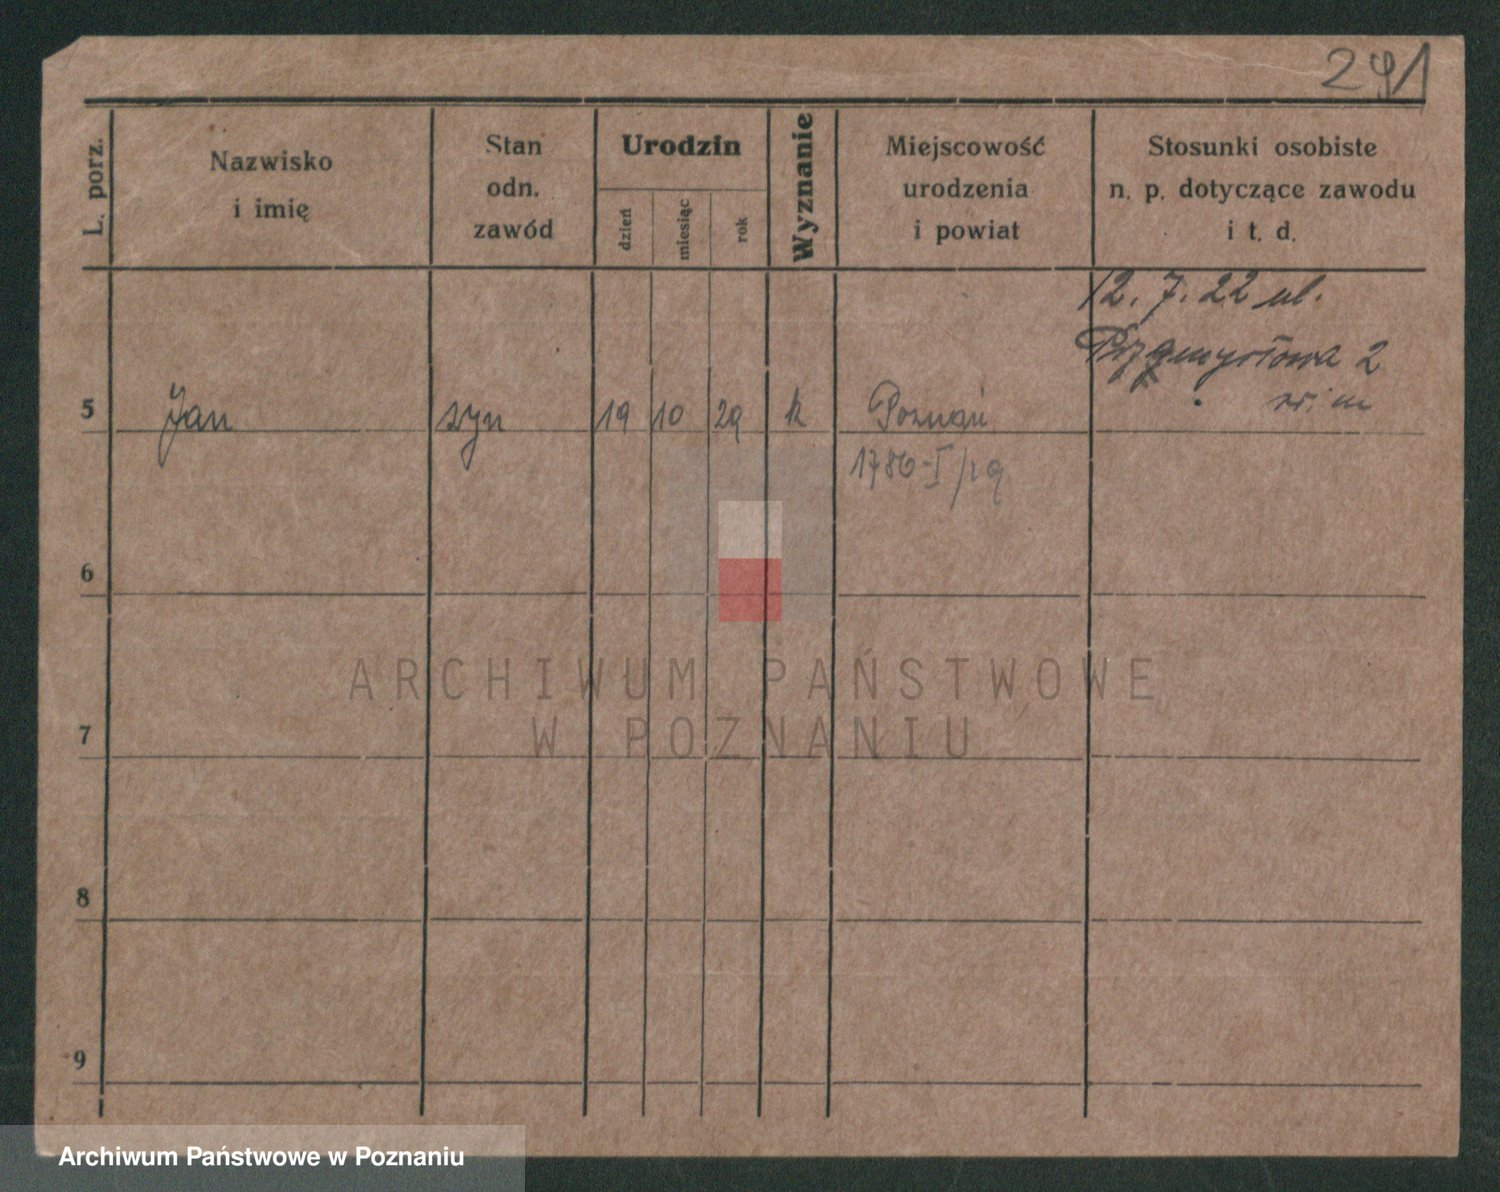 291
L. porz.
Nazwisko
i imię
Stan
odn.
zawód
Urodzin
dzień
miesiąc
rok
Wyznanie
Miejscowość
urodzenia
i powiat
Stosunki osobiste
n. p. dotyczące zawodu
i t. d.
12. 7. 22 ul.
2
5 Jan syn 19 10 29 k Poznań
1786-I
6
7
8
9
ARCHIWUM PAŃSTWOWE
W POZNANIU
Archiwum Państwowe w Poznaniu